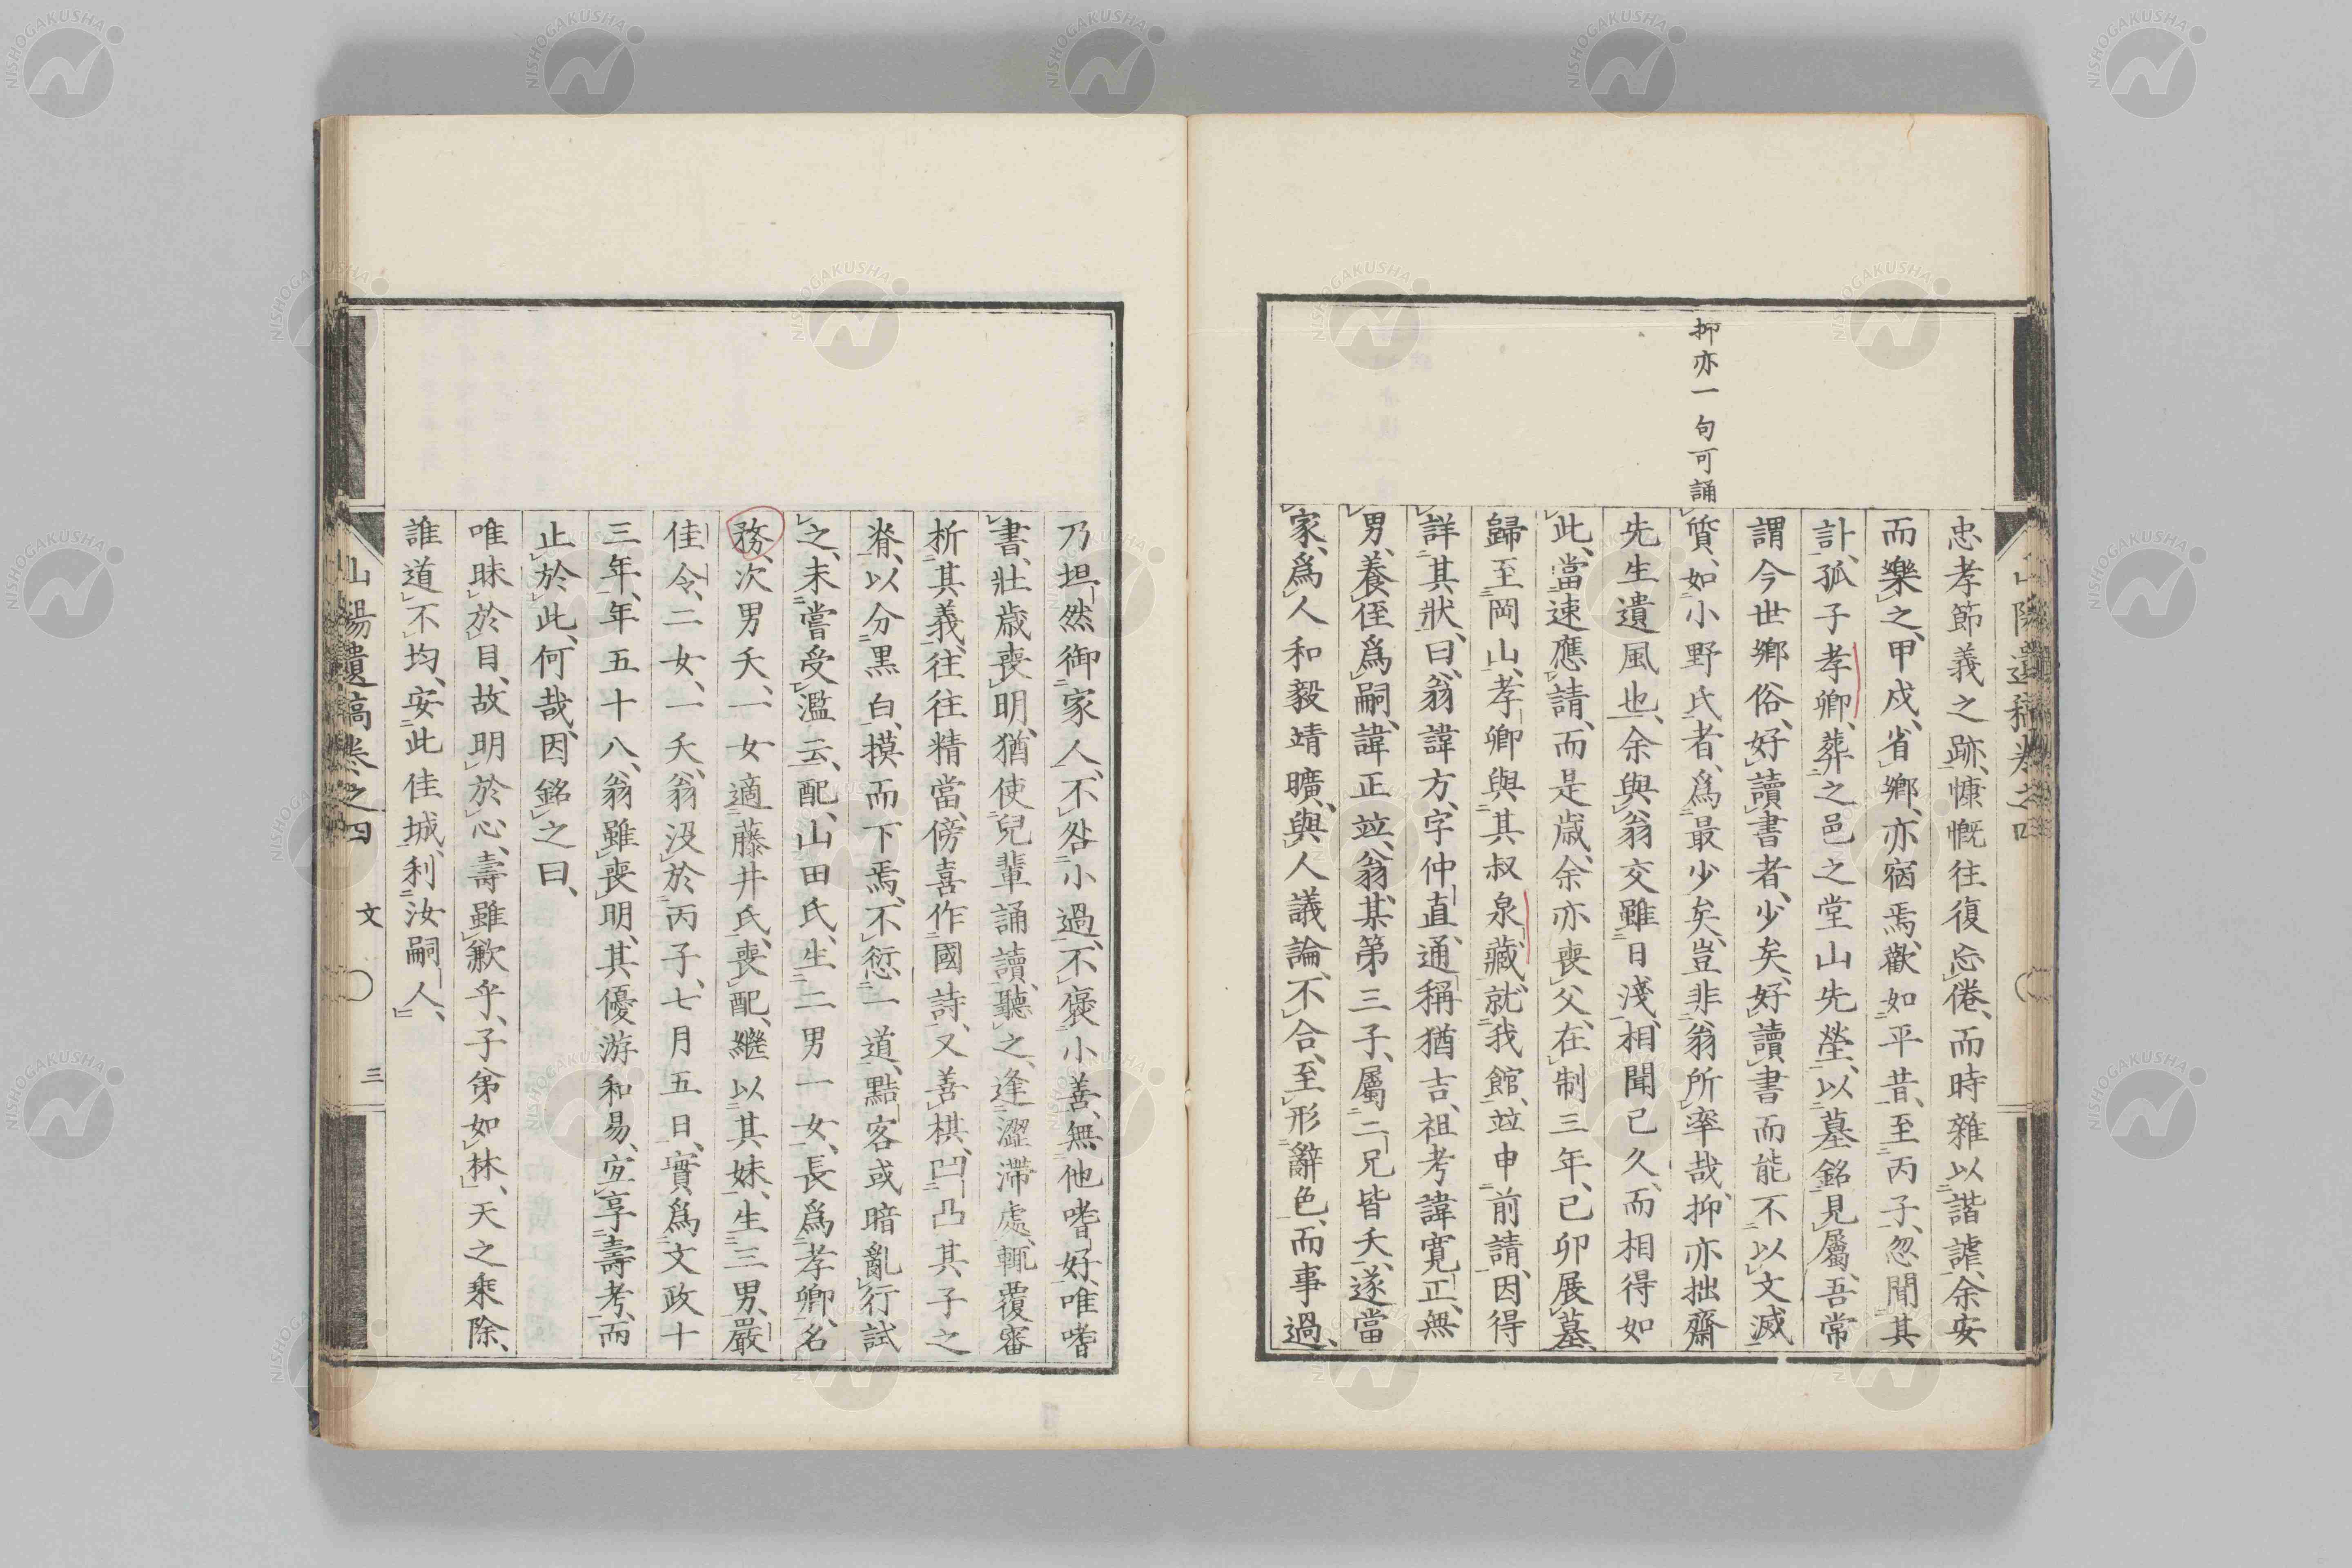 山陽遺稿卷之四
抑亦一句可誦
忠孝節義之跡、慷慨往復忘倦、而時雜以諧謔、余安
而樂之、甲戌、省鄉、亦宿焉、歡如平昔、至丙子、忽聞其
訃、孤子孝卿、葬之邑之堂山先塋、以墓銘見屬、吾常
謂今世鄉俗、好讀書者、少矣、好讀書而能不以文滅
質、如小野氏者、爲最少矣、豈非翁所率哉、抑亦拙齋
先生遺風也、余與翁交雖日淺、相聞已久、而相得如
此、當速應請、而是歲、余亦喪父、在制三年、己卯展墓、
歸至岡山、孝卿與其叔泉藏、就我館、竝申前請、因得
詳其狀、曰、翁諱方、字仲直、通稱猶吉、祖考諱寬正、無
男、養侄爲嗣、諱正竝、翁、某第三子、屬二兄皆夭、遂當
家、爲人和毅靖曠、與人議論、不合、至形辭色、而事過、
乃坦然御家人、不咎小過、不褒小善、無他嗜好、唯嗜
書、壯歲喪明、猶使兒輩誦讀、聽之、逢澀滯處、輒覆審
析其義、往往精當、傍喜作國詩、又善棋、凹凸其子之
脊、以分黑白、摸而下焉、不愆一道、點客或暗亂行試
之、未嘗受濫云、配、山田氏、生二男一女、長爲孝卿、名
務、次男夭、一女適藤井氏、喪配、繼以其妹、生三男、嚴
佳令、二女、一夭、翁沒於丙子、七月五日、實爲文政十
三年、年五十八、翁雖喪明、其優游和易、宜享壽考、而
止於此、何哉、因銘之曰、
唯昧於目、故明於心、壽雖歉乎、子弟如林、天之乘除、
誰道不均、安此佳城、利汝嗣人、
山陽遺稿卷之四 文 三